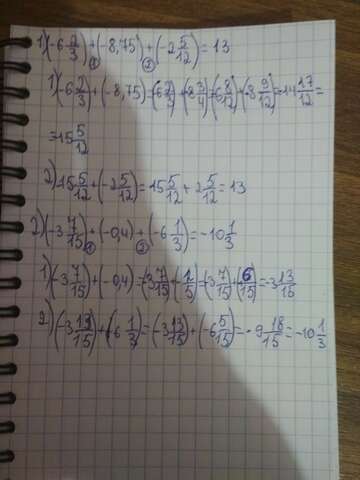 1) (-6 2/3) + (-8,75) + (-2 5/12) = 13
1) (-6 2/3) + (-8,75) = (-6 2/3) + (-8 3/4) = (-6 8/12) + (-8 9/12) = -14 17/12 =
= 15 5/12
2) 15 5/12 + (-2 5/12) = 15 5/12 + 2 5/12 = 13
2) (-3 7/15) + (-0,4) + (-6 1/3) = -10 1/3
1) (-3 7/15) + (-0,4) = (-3 7/15) + (-2/5) = (-3 7/15) + (6/15) = -3 13/15
2) (-3 13/15) + (-6 1/3) = (-3 13/15) + (-6 5/15) = -9 18/15 = -10 1/3